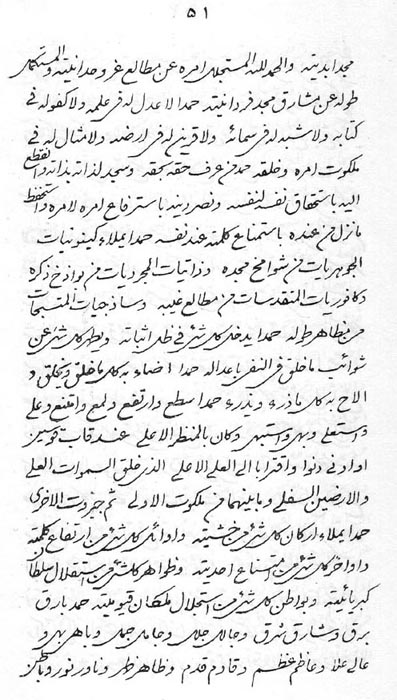 ۵۱
مجد ابدیته والحمد لله المستجلی امره عن مطالع عز وحدانیته والمستکمل
طوله عن مشارق مجد فردانیته حمدا لا عدل له فی علمه ولا کفو له فی
کتابه ولا شبه له فی سمائه ولا قرین له فی ارضه ولا مثال له فی
ملکوت امره وخلقه حمد من عرف حقه بحقه وسجد لذاته بذاته وانقطع
الیه باستحقاق نفسه لنفسه ونصر دینه باسترفاع امره لامره واستحفظ
ما نزل من عنده باستمناع کلمته عند نفسه حمدا یملاء کینونیات
الجوهریات من شوامخ مجده وذاتیات المجردیات من بواذخ ذکره
وکافوریات المتقدسات من مطالع غیبه وساذجیات المتسبحات
من مظاهر طوله حمدا یدخل کل شیء فی ظل اثباته ویطهر کل شیء عن
شوائب ما خلق فی النفی باعداله حمدا اضاء به کل ما خلق ویخلق و
الاح به کل ما ذرء ویذرء حمدا سطع وارتفع ولمع وامتنع وعلی
واستعلی وبهی واستبهی وکان بالمنظر الاعلی عند قاب قوسین
او ادنی دنوا واقترابا الی العلی الاعلی الذی خلق السموات العلی
والارضین السفلی وما بینهما من ملکوت الاولی ثم جبروت الاخری
حمدا یملاء ارکان کل شیء من خشیته واوائل کل شیء من ارتفاع کلمته
واواخر کل شیء من امتناع احدیته وظواهر کل شیء من استقلال سلطان
کبریائیته وبواطن کل شیء من استجلال ملکان قیومیته حمد بارق
برق وشارق شرق وجالل جلل وجامل جمل وباهی بهی و
عالی علا وعاظم عظم وقادم قدم وظاهر ظهر وناور نور وباطن